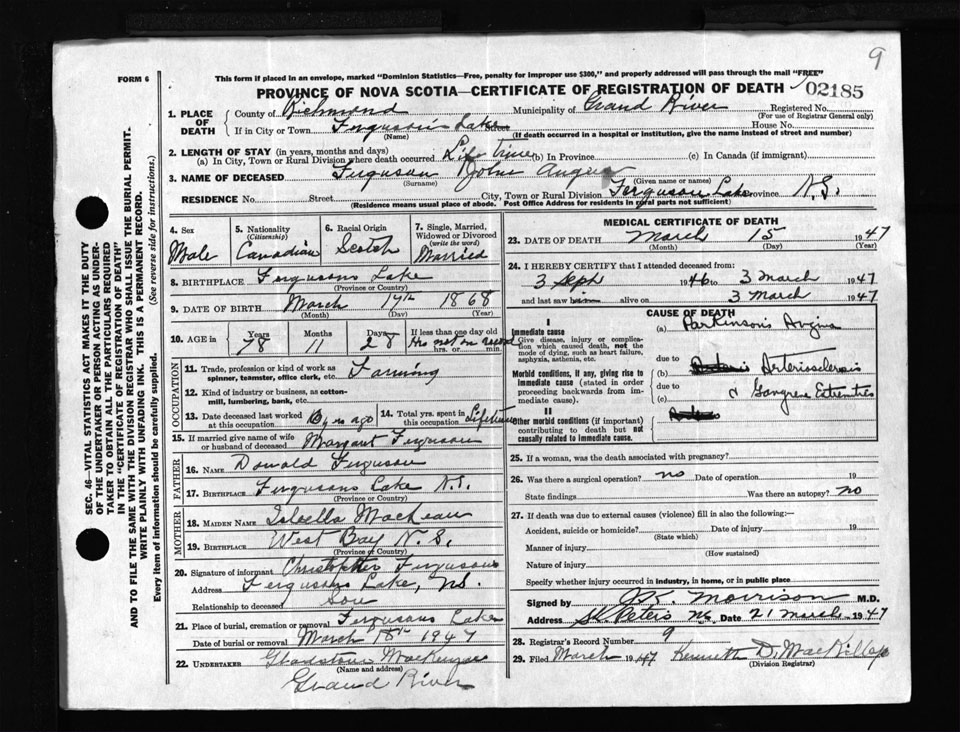 9
FORM 6
This form if placed in an envelope, marked "Dominion Statistics—Free, penalty for improper use $300," and properly addressed will pass through the mail "FREE"
PROVINCE OF NOVA SCOTIA—CERTIFICATE OF REGISTRATION OF DEATH 02185
SEC. 46—VITAL STATISTICS ACT MAKES IT THE DUTY
OF THE UNDERTAKER OR PERSON ACTING AS UNDER-
TAKER TO OBTAIN ALL THE PARTICULARS REQUIRED
IN THE "CERTIFICATE OF REGISTRATION OF DEATH"
AND TO FILE THE SAME WITH THE DIVISION REGISTRAR WHO SHALL ISSUE THE BURIAL PERMIT.
WRITE PLAINLY WITH UNFADING INK. THIS IS A PERMANENT RECORD.
Every item of information should be carefully supplied. (See reverse side for instructions.)
1. PLACE OF DEATH County of Richmond Municipality of Grand River Registered No.
(For use of Registrar General only)
If in City or Town Ferguson's Lake Street House No.
(Name) (If death occurred in a hospital or institution, give the name instead of street and number)
2. LENGTH OF STAY (in years, months and days)
(a) In City, Town or Rural Division where death occurred Life time (b) In Province (c) In Canada (if immigrant)
3. NAME OF DECEASED Ferguson John Angus
(Surname) (Given name or names)
RESIDENCE No. Street City, Town or Rural Division Ferguson Lake Province N.S.
(Residence means usual place of abode. Post Office Address for residents in rural parts not sufficient)
4. Sex Male
5. Nationality (Citizenship) Canadian
6. Racial Origin Scotch
7. Single, Married, Widowed or Divorced (write the word) Married
8. BIRTHPLACE Fergusons Lake
(Province or Country)
9. DATE OF BIRTH March 17th 1868
(Month) (Day) (Year)
10. AGE in Years 78 Months 11 Days 28 If less than one day old
Hrs not on record
hrs. or min.
OCCUPATION
11. Trade, profession or kind of work as
spinner, teamster, office clerk, etc. Farming
12. Kind of industry or business, as cotton-
mill, lumbering, bank, etc.
13. Date deceased last worked
at this occupation yrs ago
14. Total yrs. spent in
this occupation Lifetime
15. If married give name of wife
or husband of deceased Margaret Ferguson
FATHER
16. NAME Donald Ferguson
17. BIRTHPLACE Fergusons Lake N.S.
(Province or Country)
MOTHER
18. MAIDEN NAME Isbella MacLean
19. BIRTHPLACE West Bay N.S.
(Province or Country)
20. Signature of informant Christopher Ferguson
Address Fergusons Lake, N.S.
Relationship to deceased Son
21. Place of burial, cremation or removal Fergusons Lake
Date of burial or removal March 18th 1947
22. UNDERTAKER Gladstone MacKenzie
(Name and address)
Grand River
MEDICAL CERTIFICATE OF DEATH
23. DATE OF DEATH March 15 1947
(Month) (Day) (Year)
24. I HEREBY CERTIFY that I attended deceased from:
3 Sept 1946 to 3 March 1947
and last saw h alive on 3 March 1947
CAUSE OF DEATH
I
Immediate cause
Give disease, injury or complica-
tion which caused death, not the
mode of dying, such as heart failure,
asphyxia, asthenia, etc.
(a) Parkinson's Angina
due to
Morbid conditions, if any, giving rise to
immediate cause (stated in order
proceeding backwards from im-
mediate cause).
(b) Arteriosclerosis
due to
(c) & Gangrene Extremities
II
Other morbid conditions (if important)
contributing to death but not
causally related to immediate cause.
25. If a woman, was the death associated with pregnancy?
26. Was there a surgical operation? no Date of operation 19
State findings Was there an autopsy? no
27. If death was due to external causes (violence) fill in also the following:—
Accident, suicide or homicide? Date of injury 19
(State which)
Manner of injury
(How sustained)
Nature of injury
Specify whether injury occurred in industry, in home, or in public place
Signed by J.K. Morrison M.D.
Address St. Peters NS Date 21 March 1947
28. Registrar's Record Number 9
29. Filed March 1947 Kenneth D. MacKillop
(Division Registrar)